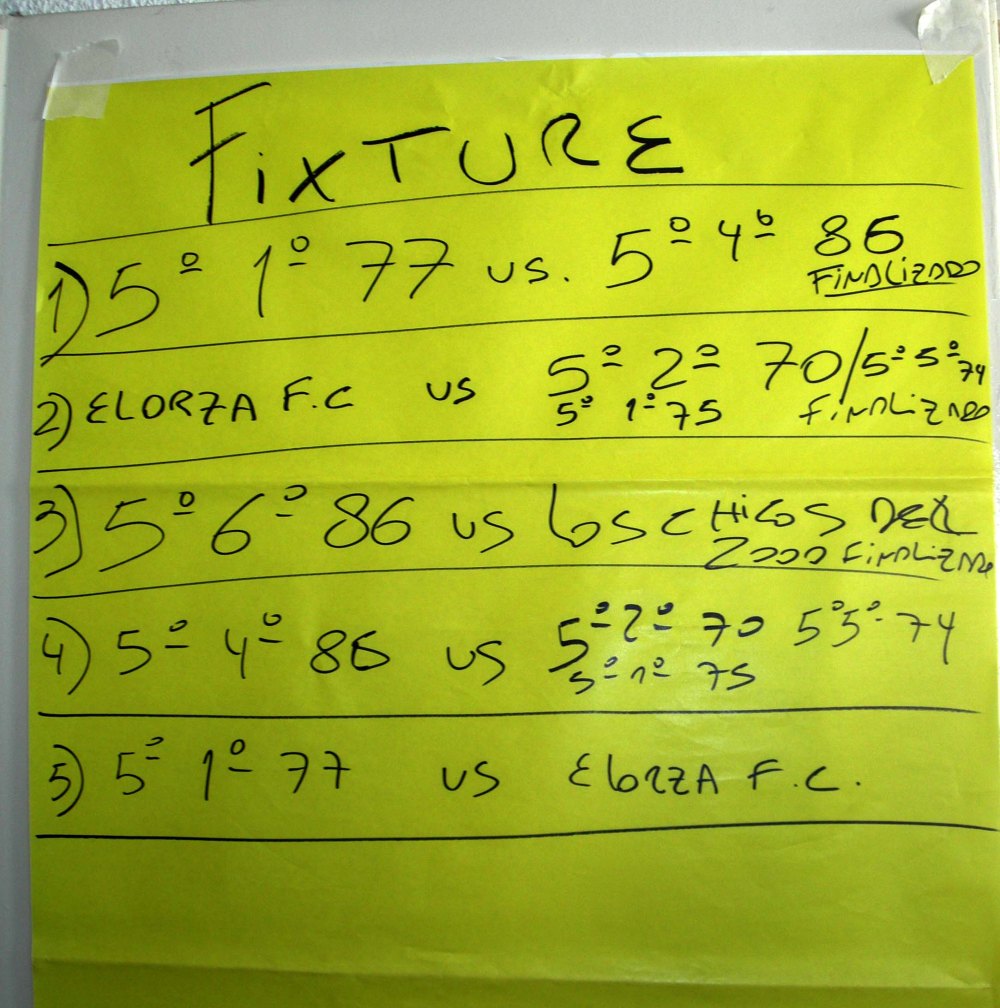 FiXTURE
1) 5º 1º 77 vs. 5º 4º 86
FiNALiZADO
2) ELORZA F.C vs 5º 2º 70/5º 5º 74
5º 1º 75 FiNALiZADO
3) 5º 6º 86 vs LOS CHiCOS DEL
2000 FiNALiZADO
4) 5º 4º 86 vs 5º 2º 70 5º5º 74
5º 1º 75
5) 5º 1º 77 vs ELORZA F.C.